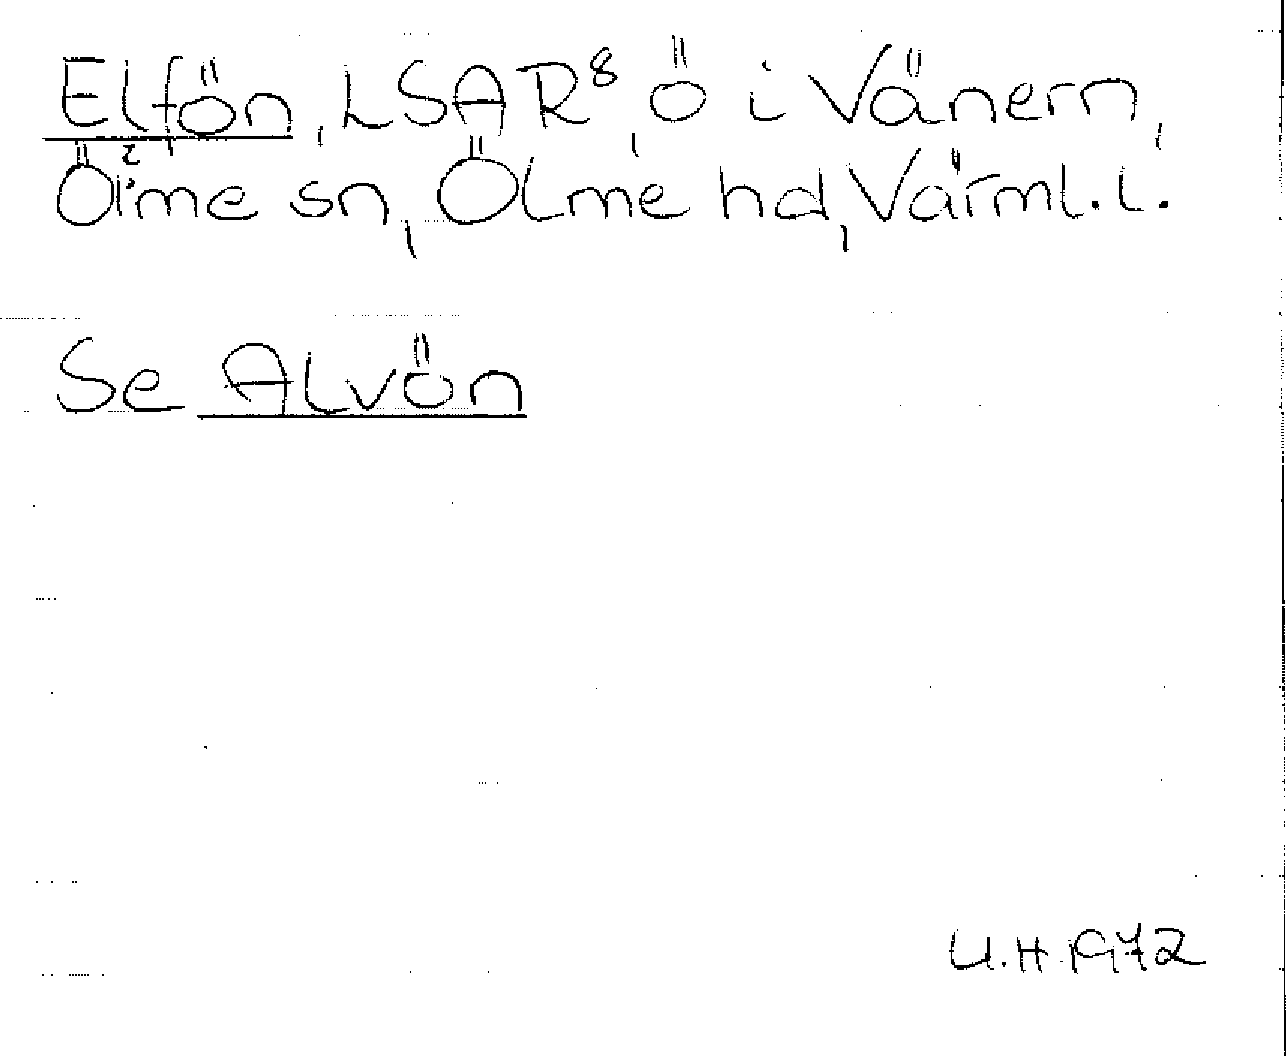 Elfön, LSAR⁸, ö i Vänern,
Ölme sn, Ölme hd, Värml.l.
Se Alvön
U.H. 1972